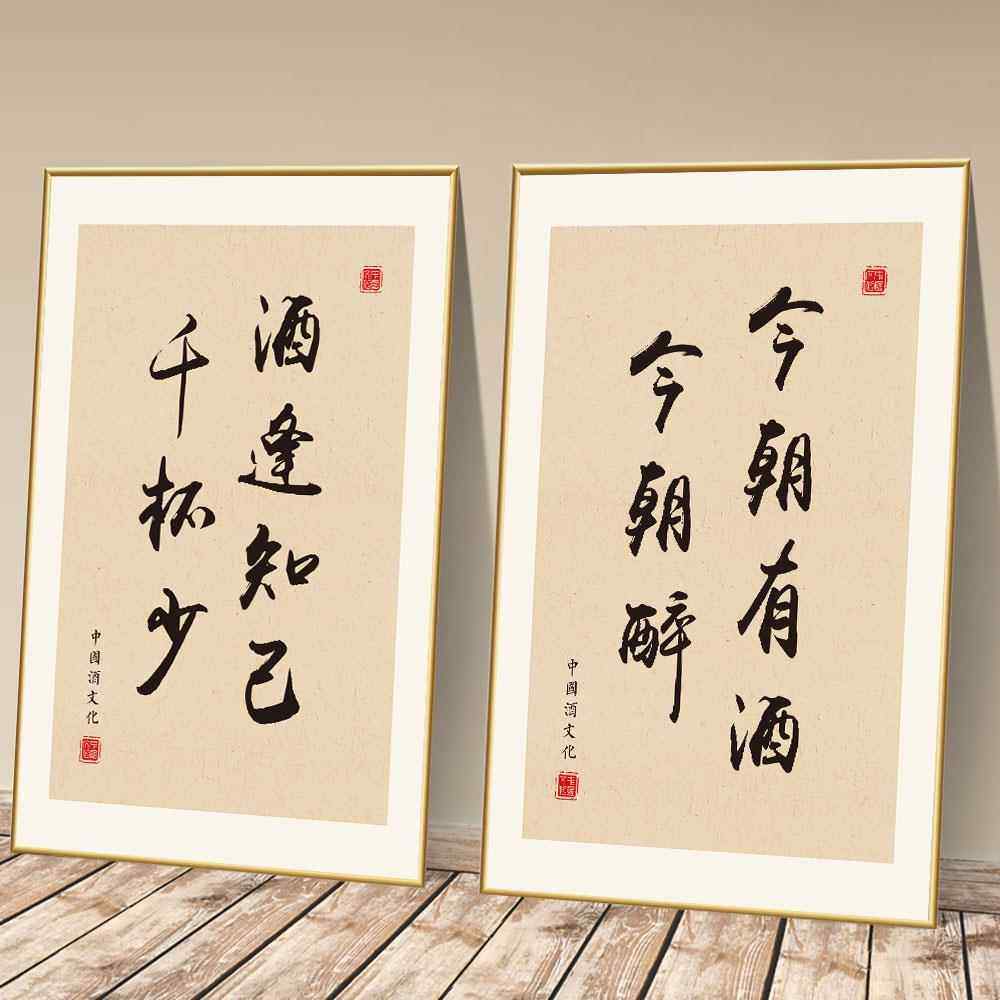 酒逢知己
千杯少
中國酒文化
今朝有酒
今朝醉
中國酒文化